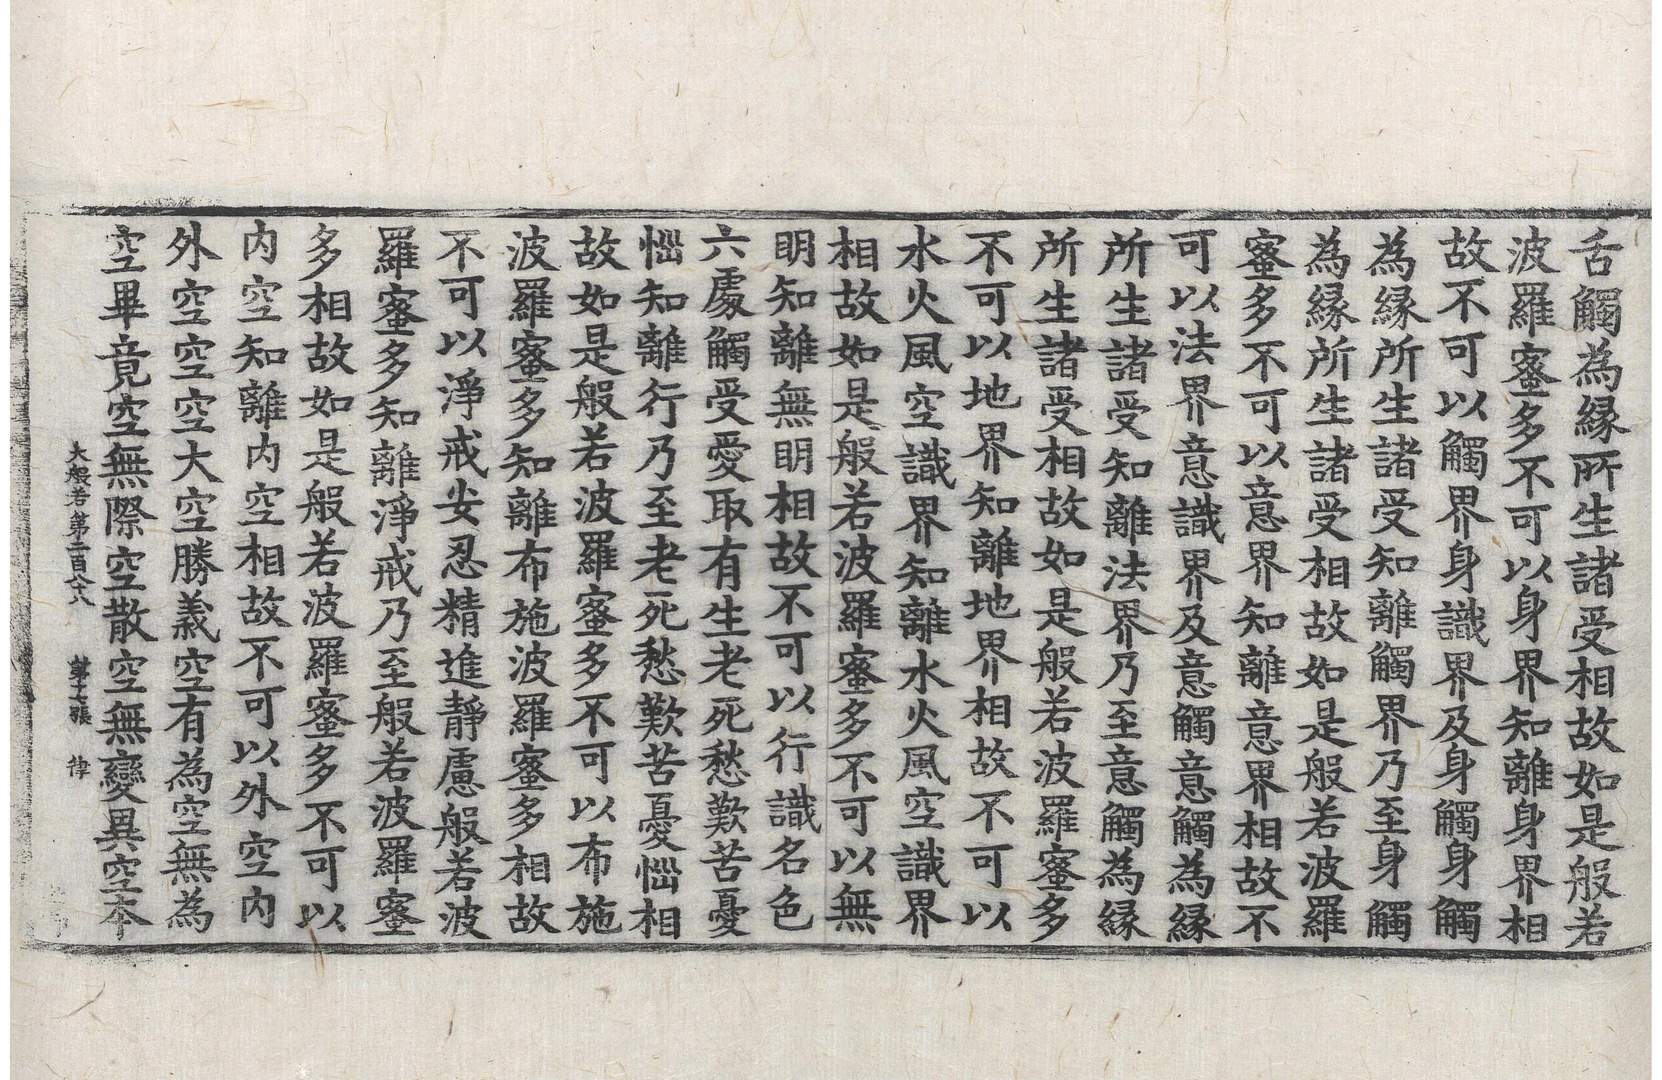 舌觸為縁所生諸受相故如是般若
波羅蜜多不可以身界知離身界相
故不可以觸界身識界及身觸身觸
為縁所生諸受知離觸界乃至身觸
為縁所生諸受相故如是般若波羅
蜜多不可以意界知離意界相故不
可以法界意識界及意觸意觸為縁
所生諸受知離法界乃至意觸為縁
所生諸受相故如是般若波羅蜜多
不可以地界知離地界相故不可以
水火風空識界知離水火風空識界
相故如是般若波羅蜜多不可以無
明知離無明相故不可以行識名色
六處觸受愛取有生老死愁歎苦憂
惱知離行乃至老死愁歎苦憂惱相
故如是般若波羅蜜多不可以布施
波羅蜜多知離布施波羅蜜多相故
不可以淨戒安忍精進靜慮般若波
羅蜜多知離淨戒乃至般若波羅蜜
多相故如是般若波羅蜜多不可以
內空知離內空相故不可以外空內
外空空空大空勝義空有為空無為
空畢竟空無際空散空無變異空本
大般若第二百六八 第十一張 律